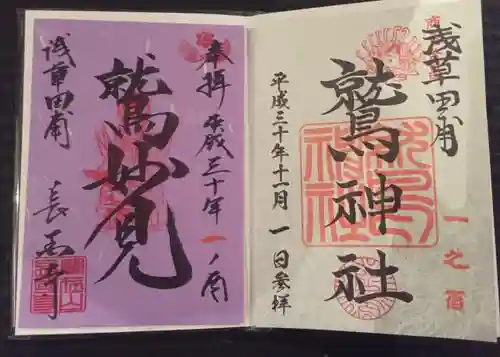 酉
浅草田甫
鷲神社
平成三十年十一月一日参拝
一之酉
奉拝 平成三十年 一ノ酉
鷲妙見
浅草田甫 長国寺